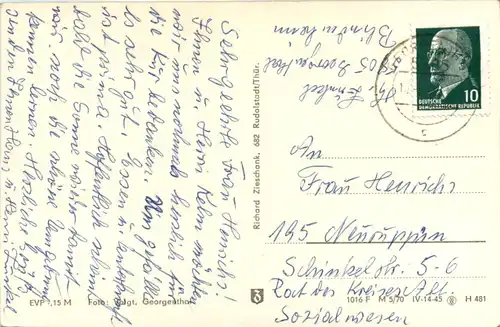 Sehr geehrte Frau Henrichs!
Ihnen u. Herrn Kelm möchten
wir uns nochmals herzlich für
die Kur bedanken. Uns gefällt
es sehr gut. Essen u. Unterkunft
ist prima. Hoffentlich scheint
bald die Sonne wieder, damit
wir noch die schöne Umgebung
kennen lernen. Herzliche Grüße
senden Ihnen
DEUTSCHE
DEMOKRATISCHE REPUBLIK
10
Richard Zieschank, 682 Rudolstadt/Thür.
An
Frau Henrichs
195 Neuruppin
Schinkelstr. 5-6
Rat des Kreises Abt.
Sozialwesen
EVP -,15 M Foto: Voigt, Georgenthal
1016 F M 5/70 IV-14-45 H 481